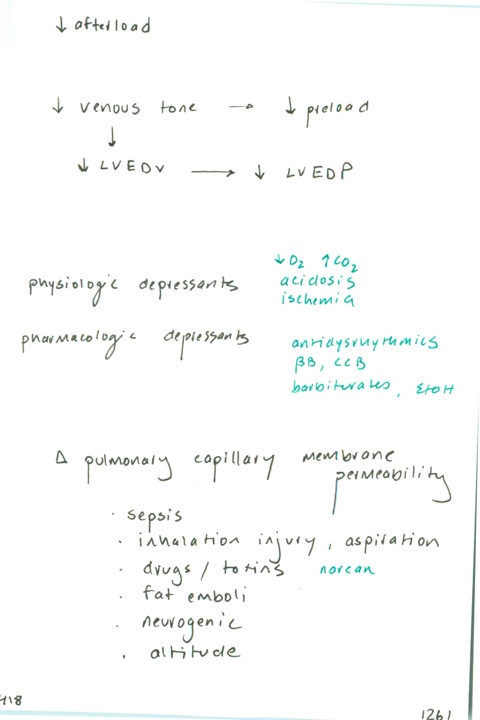 ↓ afterload
↓ venous tone → ↓ preload
↓
↓ LVEDV → ↓ LVEDP
↓O₂ ↑CO₂
physiologic depressants acidosis
ischemia
pharmacologic depressants antidysrhythmics
βB, CCB
barbiturates, EtOH
Δ pulmonary capillary membrane
permeability
· sepsis
· inhalation injury, aspiration
· drugs / toxins narcan
· fat emboli
· neurogenic
· altitude
418
1261